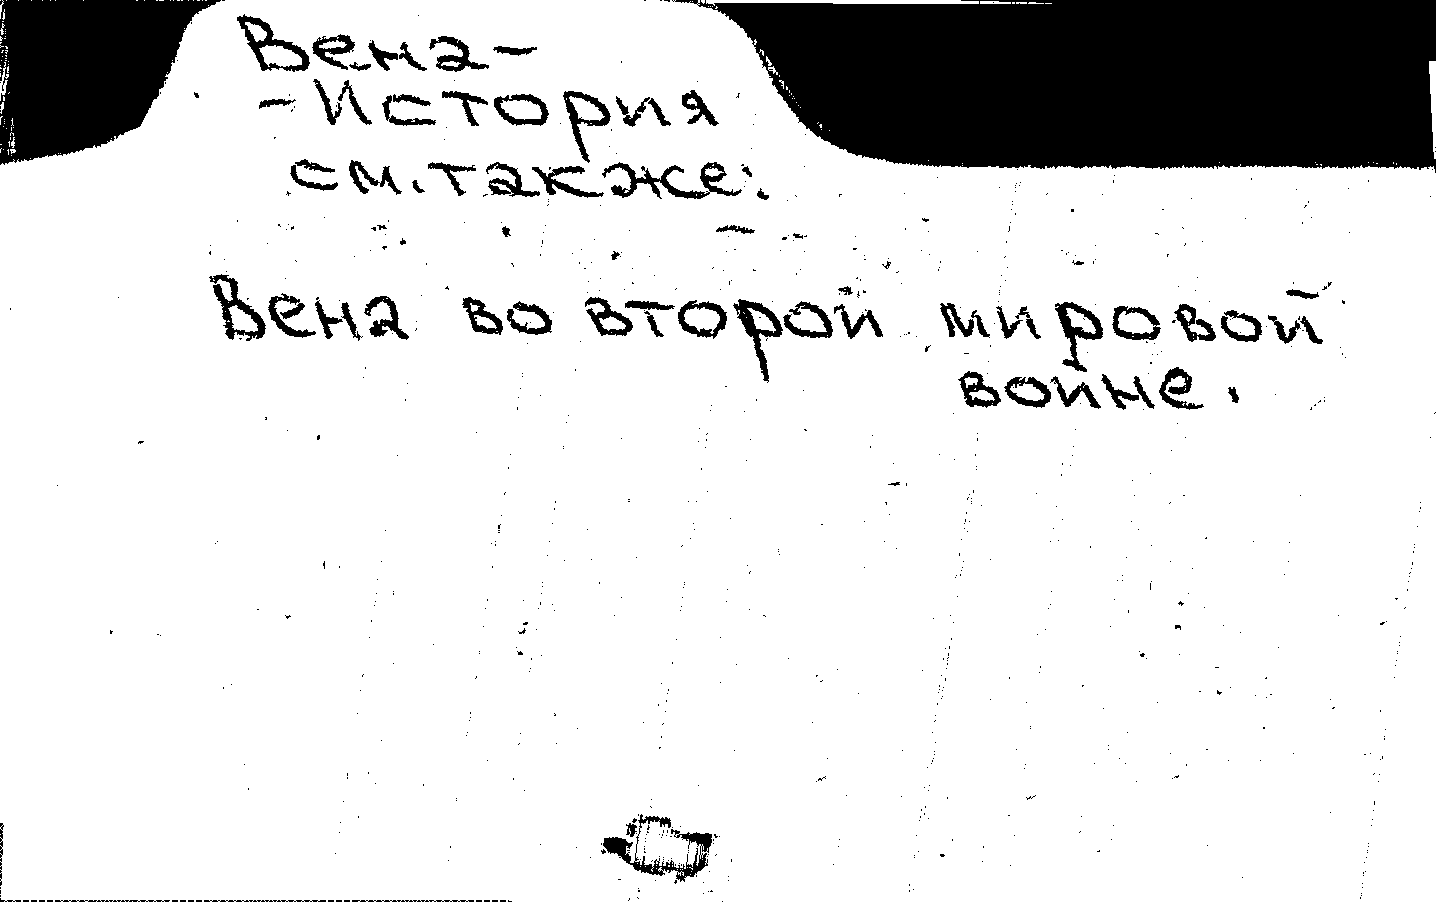 Вена-
-История
см. также:
Вена во второй мировой
войне.